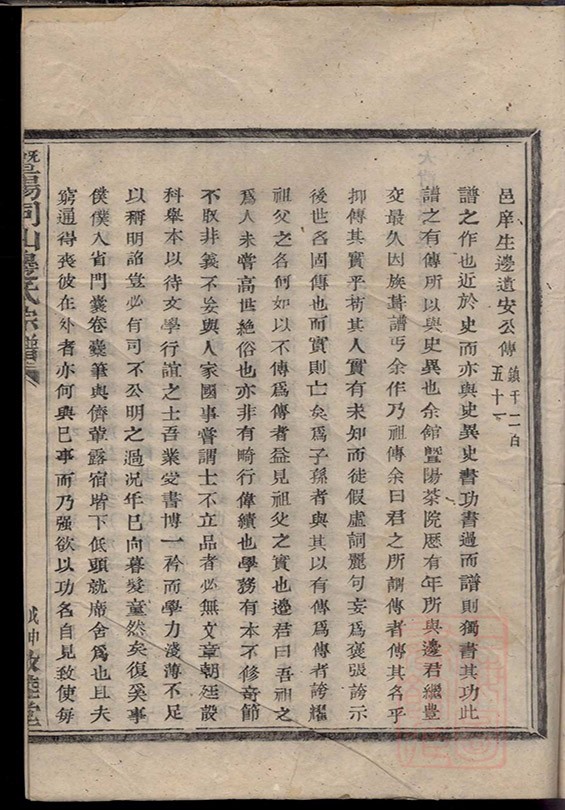 邑庠生邊遺安公傳 鎮千二百五十一
譜之作也近於史而亦與史異史書功書過而譜則獨書其功此
譜之有傳所以與史異也余館暨陽茶院歷有年所與邊君繼豊
交最久因族葺譜丐余作乃祖傳余曰君之所謂傳者傳其名乎
抑傳其實乎苐其人實有未知而徒假虛詞麗句妄爲褒張誇示
後世名固傳也而實則亡矣爲子孫者與其以有傳爲傳者誇耀
祖父之名何如以不傳爲傳者益見祖父之實也邊君曰吾祖之
爲人未嘗高世絶俗也亦非有畸行偉績也學務有本不修奇節
不取非義不妄與人家國事嘗謂士不立品者必無文章朝廷設
科舉本以待文學行誼之士吾業受書博一衿而學力淺薄不足
以稱明詔豈必有司不公明之過况年已向暮髮童然矣復奚事
僕僕入省門囊卷橐筆與儕輩露宿堦下低頭就席舍爲也且夫
窮通得喪彼在外者亦何與已事而乃强欲以功名自見致使每
暨陽同山邊氏宗譜
戊申 敦睦堂